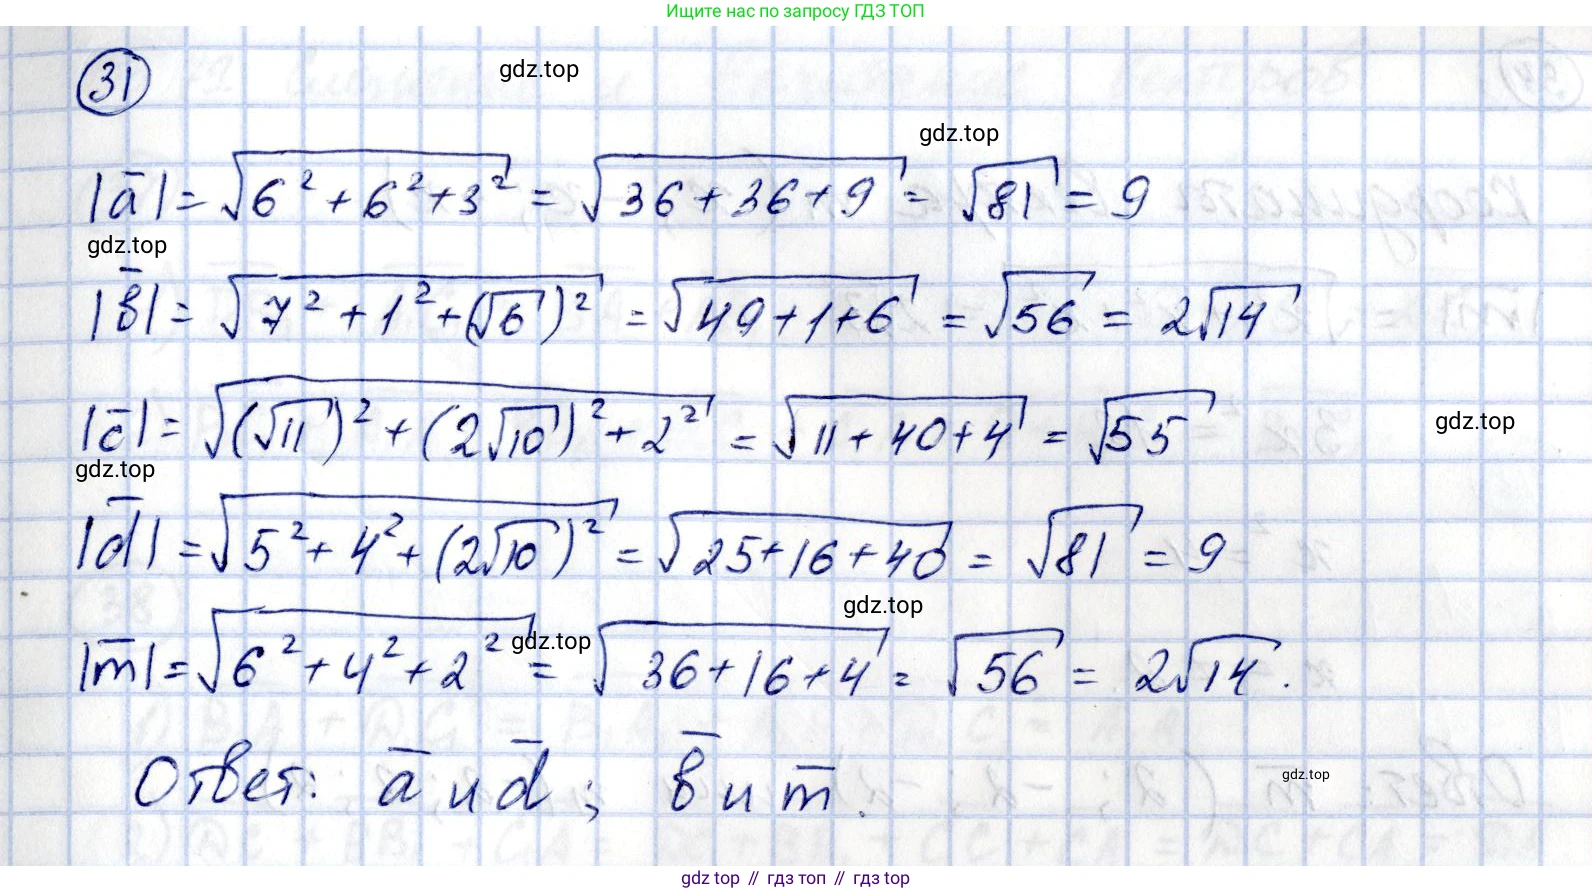 Ищите нас по запросу ГДЗ ТОП
31
gdz.top
gdz.top
|a̅| = √(6² + 6² + 3²) = √(36 + 36 + 9) = √81 = 9
gdz.top
|b̅| = √(7² + 1² + (√6)²) = √(49 + 1 + 6) = √56 = 2√14
|c̅| = √((√11)² + (2√10)² + 2²) = √(11 + 40 + 4) = √55
gdz.top
gdz.top
|d̅| = √(5² + 4² + (2√10)²) = √(25 + 16 + 40) = √81 = 9
gdz.top
gdz.top
|m̅| = √(6² + 4² + 2²) = √(36 + 16 + 4) = √56 = 2√14.
Ответ: a̅ и d̅; b̅ и m̅.
gdz.top
gdz.top // гдз топ // gdz.top